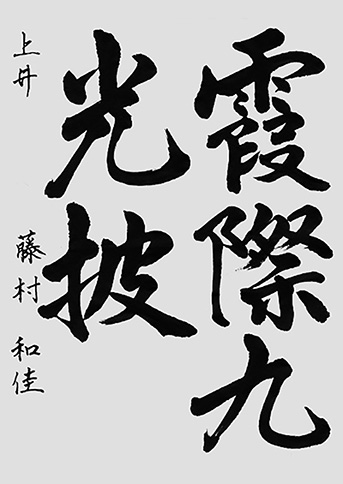 霞際九
光披
上井 藤村和佳